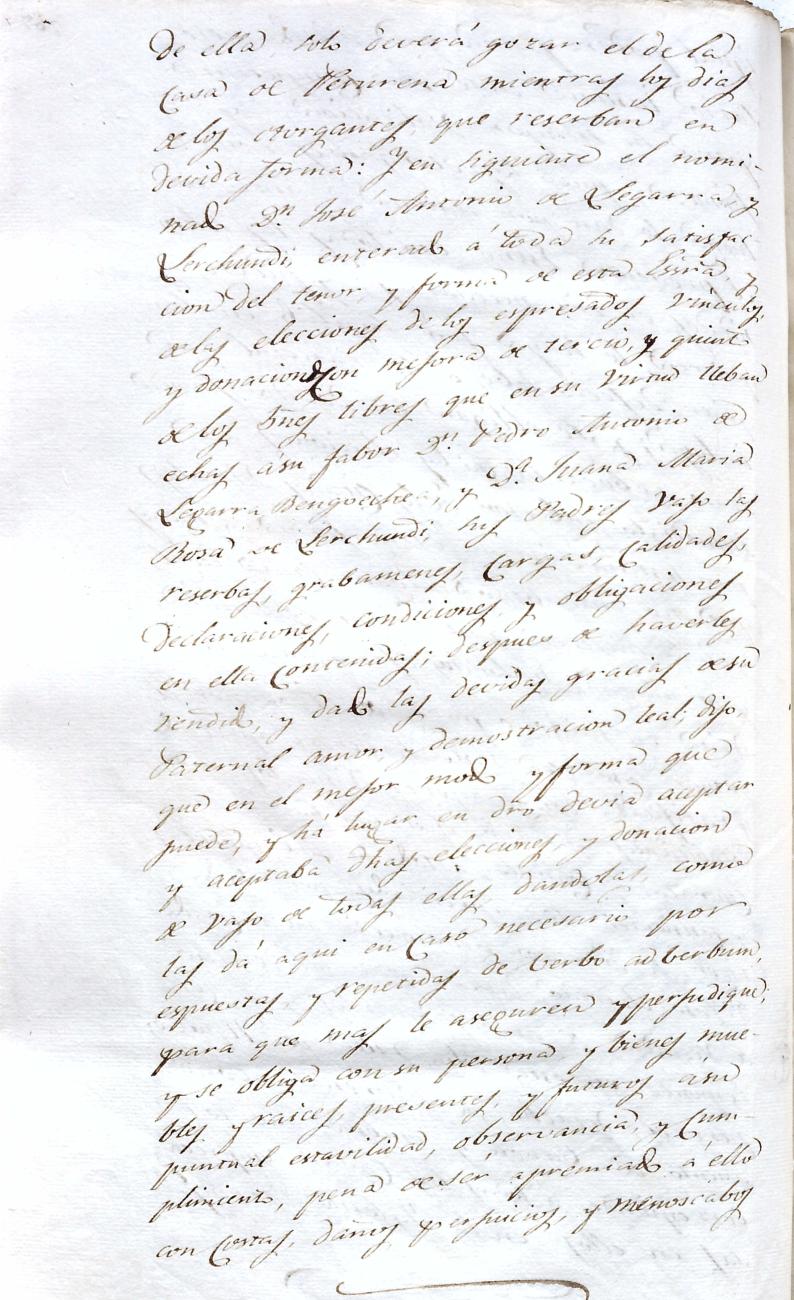 de ella, solo deverá gozar el de la
Casa de Peturena mientras los dias
de los otorgantes, que reserban en
devida forma: Y en siguiente el nomi-
nado Dn. José Antonio de Legarra y
Lerchundi, enterado á toda su satisfac-
cion del tenor, y forma de esta Essra, y
de las elecciones de los espresados vinculos,
y donacion con mejora de tercio, y quinto
de los bnes libres que en su virtud lleban
echas á su fabor Dn. Pedro Antonio de
Legarra Bengoechea, y Da. Juana Maria
Rosa de Lerchundi, sus Padres vajo las
reserbas, grabamenes, Cargas, Calidades,
Declaraciones, condiciones, y obligaciones
en ella Contenidas; despues de haverles
rendido, y dado las devidas gracias de su
Paternal amor, y demostracion leal; dijo,
que en el mejor modo y forma que
puede, y há lugar en dro, devia aceptar
y aceptaba dhas elecciones, y donacion
de vajo de todas ellas, dandolas, como
las dá aqui en Caso necesario por
espuestas, y repetidas de verbo ad verbum,
para que mas le aseguren y perjudique;
y se obliga con su persona, y bienes mue-
bles y raices, presentes, y futuros á su
puntual estavilidad, observancia, y Cum-
plimiento, pena de sér apremiado á ello
con Costas, daños perjuicios, y menoscabos